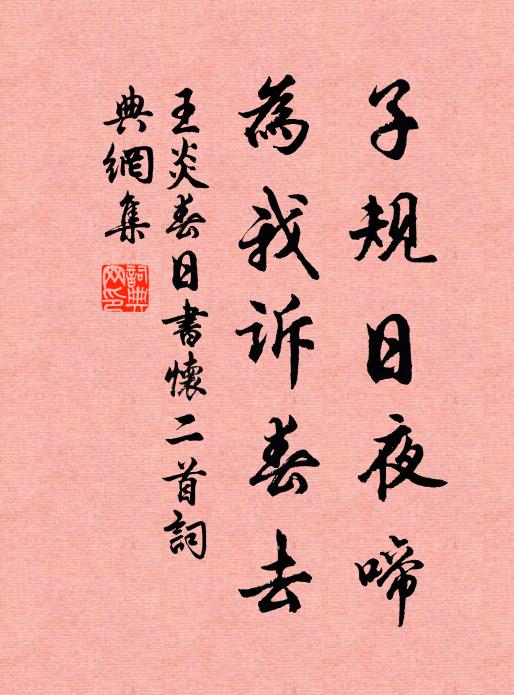 子規日夜啼
為我訴春去
王炎春日書懷二首詞
典網集
詞典網印